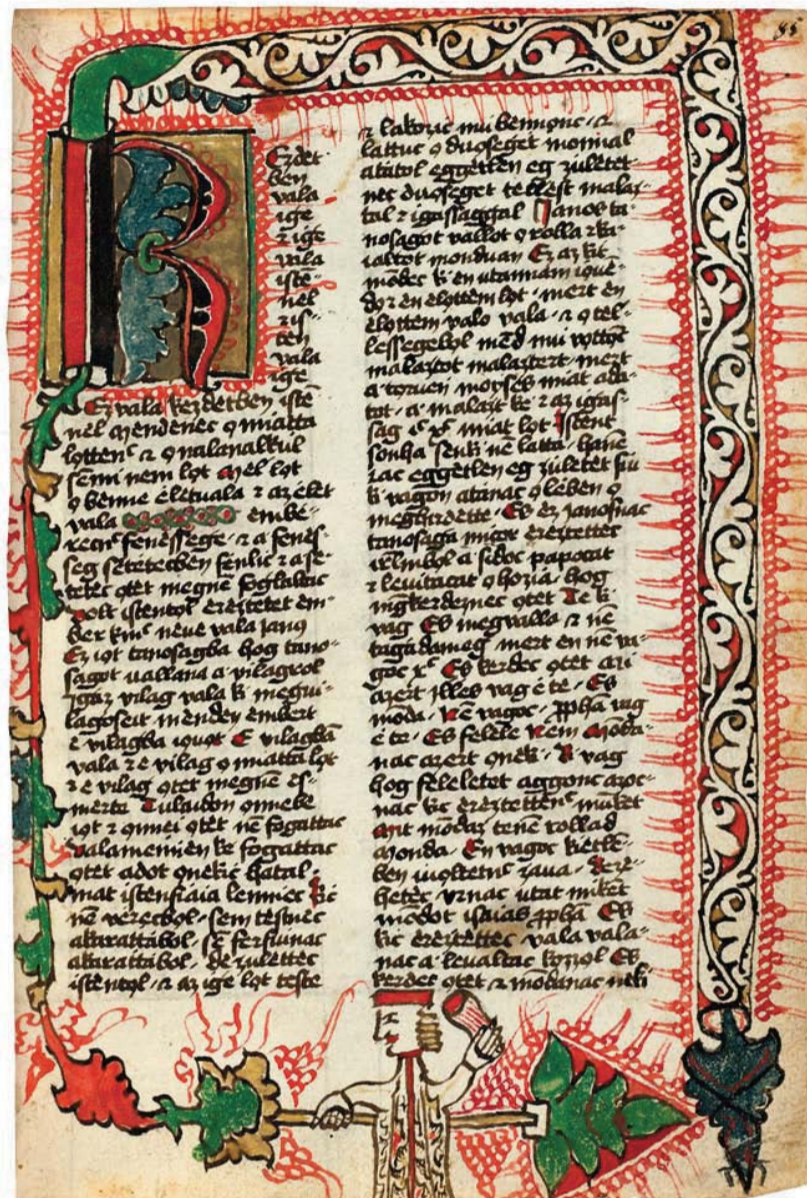 K
Ezdet
ben
vala
ige
ꝛ ige
vala
iste-
nèl
ꝛ is-
ten
vala
ige
Ez vala kezdetben istē
nel mendenec ǫ miatta
lǫttenc̄ ꝛ ǫ nalanalkul
sèmi nem lǫt Mel lǫt
ǫ benne èlet vala ꝛ az èlet
vala embè-
recnc̄ fenèssege · ꝛ a fenès-
seg sètetecben fenlic ꝛ a sè-
tetec ǫtèt megnē foglaltac
Volt istentǫl èrèztetèt em-
ber kinc̄ neue vala janǫs
Ez iǫt tanosagba hog tano-
sagot uallana a vilagrol
Igaz vilag vala ki meguî-
lagoseit mendèn embert
è vilagba iǫuǫt E vilagbā
vala ꝛ è vilag ǫ miatta lǫt
ꝛ è vilag ǫtèt megnē es-
mèrte Tulaidon ǫnnèbe
iǫt ꝛ ǫnnèi ǫtèt nē fogattac
Valamèniēn kè fogattac
ǫtèt adot ǫnèkic hatal-
mat istènfiaia lenniec kic
nē verecbǫl · sem tèstnèc
akarattabol · sē ferfiunac
akarattabol · de zulèttec
istentǫl · ꝛ az ige lǫt tèstè
ꝛ lakozic mu bennonc · ꝛ
lattuc ǫ duǫseget monnal
atatol eggètlèn èg zulètet
nèc duǫseget tèllèst malaz-
tal ꝛ igassaggal Janos ta-
nosagot vallot ǫ rolla ꝛ ka-
ialtot monduan Ez az kit
mōdec ki en utannam iǫuē-
dǫ ꝛ en èlǫttem lǫt · mert en
èlǫttem valo vala · ꝛ ǫ tèl-
lèssegebǫl mēd mui vǫttǫc
malaztot malaztert · mert
a tǫruēn moyses miat ada-
tot · a malazt kè ꝛ az igas-
sag ic̄ xc̄ miat lǫt Istènt
sonha sènki nē latta · hanē
iac eggètlèn èg zulètet fiu
ki vagon atanac ǫlèben ǫ
megbezdette · Es ez janosnac
tanosaga micor èrèztettec
irlmbǫl a sidoc papocat
ꝛ leuitacat ǫ hozia · hog
mgkerdeznec ǫtèt Te ki
vag Es megualla ꝛ nē
tagada meg mert en nē va-
goc xc̄ Es kerdec ǫtèt azi
azert illes vag è te · Es
mōda · Nē vagoc · pphā vag
è te · Es felèle Nem Mōda-
nac azert ǫnèki · Ki vag
hog felelètet aggonc azoc-
nac kic èrèztettenc̄ mūkèt
Mit mōdaz tenē rollad
Monda · En vagoc kiètlē-
ben iuǫltènc̄ zaua · Zèrèz-
hetec vrnac vtat mikènt
mōdot isaias pphā Es
kic èrèztettec vala vala-
nac a leualtac kozzǫl Es
kerdec ǫtèt ꝛ mōdanac nèki